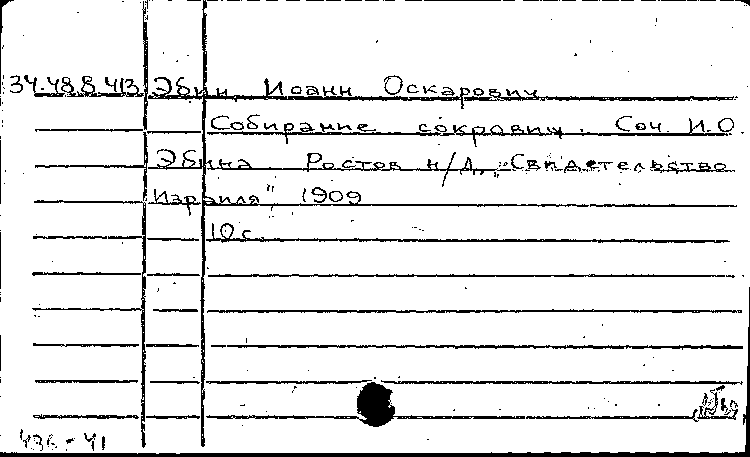 34.48.8.413 Эбин, Иоанн Оскарович
Собирание сокровищ. Соч. И.О.
Эбина. Ростов н/Д., „Свидетельство
Израиля", 1909
10 с.
436-41